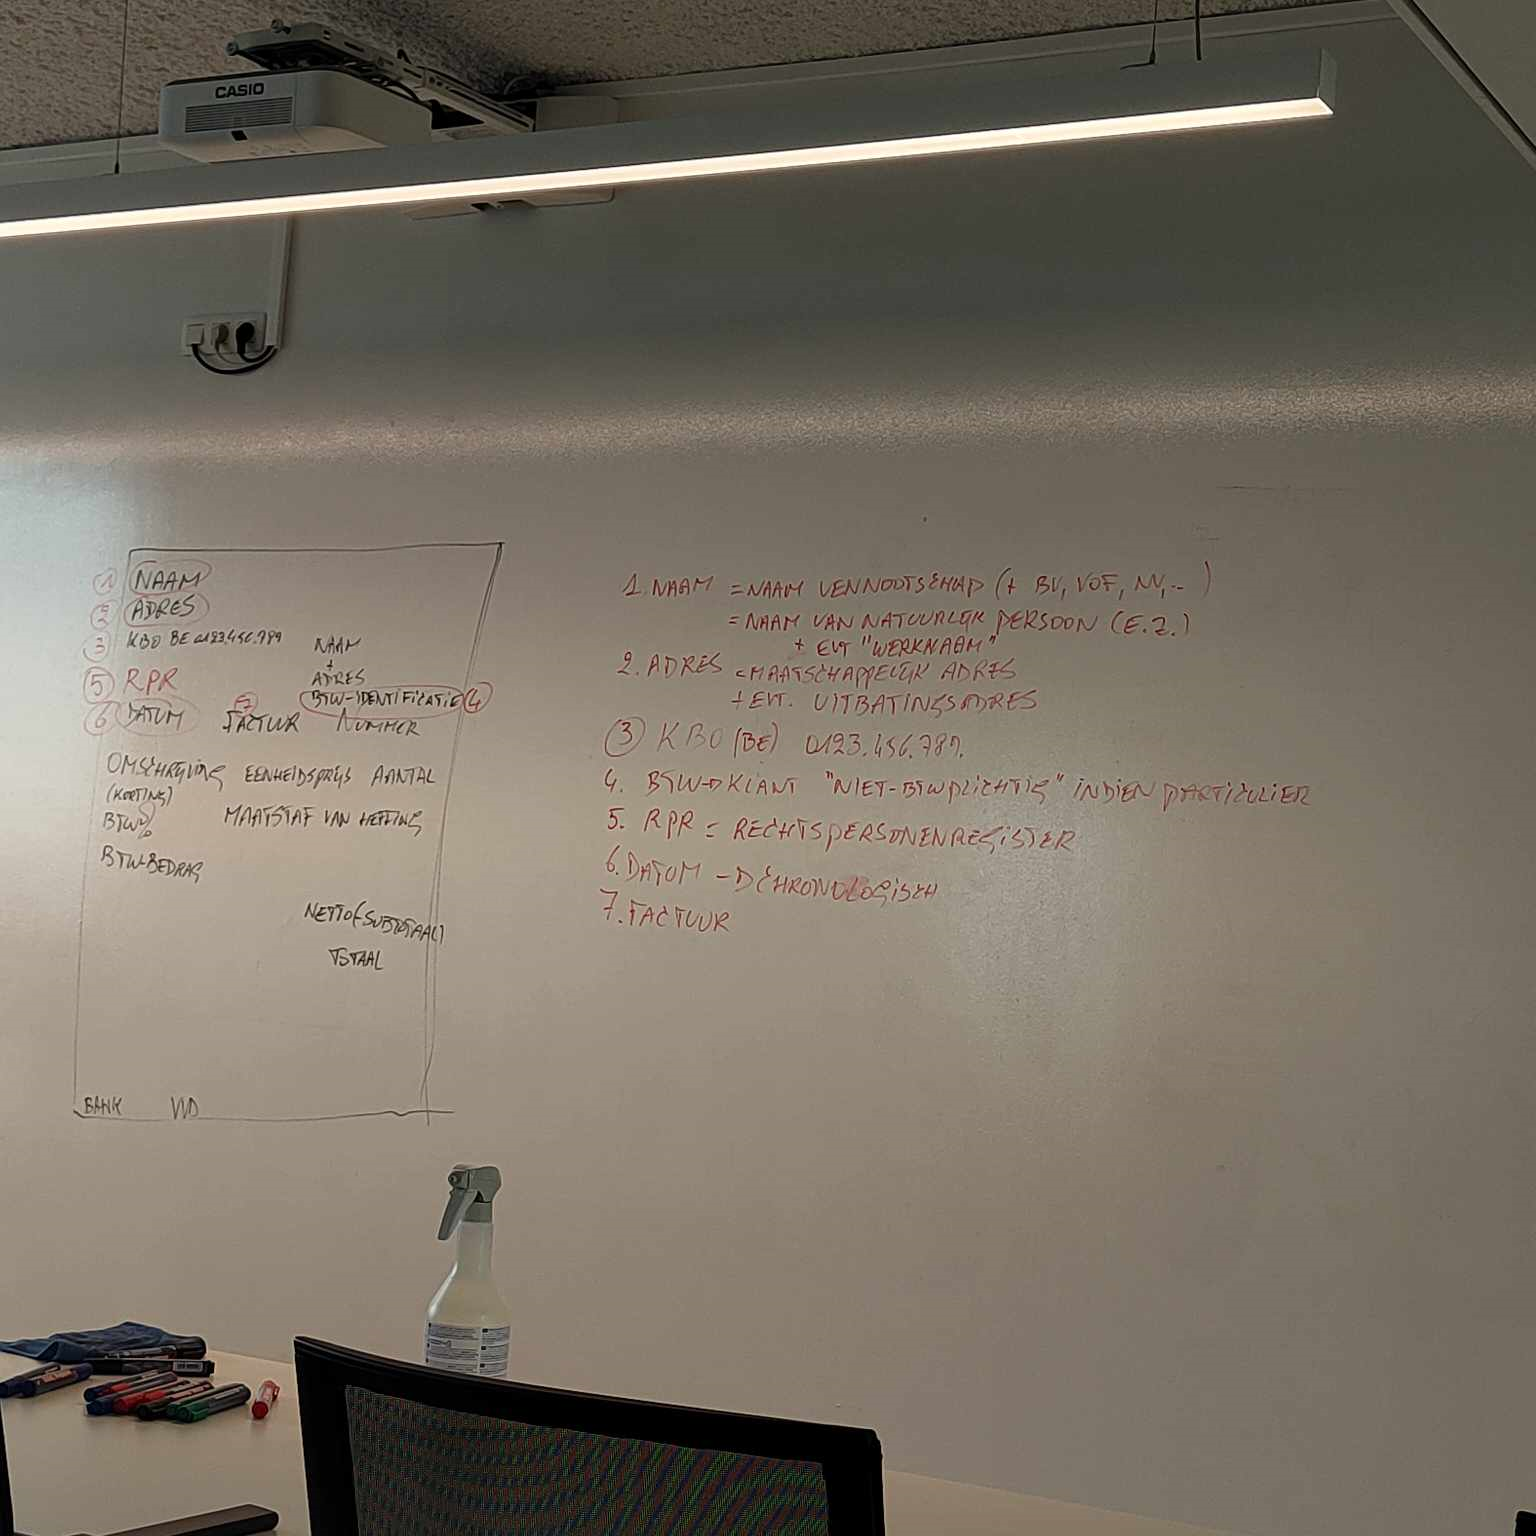 CASIO
1 NAAM
2 ADRES
3 KBO BE 0123.456.789
NAAM
+
ADRES
5 RPR
BTW-IDENTIFICATIE 4
6 DATUM
7 FACTUUR NUMMER
OMSCHRIJVING EENHEIDSPRIJS AANTAL
(KORTING)
BTW% MAATSTAF VAN HEFFING
BTW-BEDRAG
NETTO (SUBTOTAAL)
TOTAAL
BANK VVD
1. NAAM = NAAM VENNOOTSCHAP (+ BV, VOF, NV,..)
= NAAM VAN NATUURLIJK PERSOON (E.Z.)
+ EVT "WERKNAAM"
2. ADRES = MAATSCHAPPELIJK ADRES
+ EVT. UITBATINGSADRES
3 KBO (BE) 0123.456.789.
4. BTW→KLANT "NIET-BTWPLICHTIG" INDIEN PARTICULIER
5. RPR = RECHTSPERSONENREGISTER
6. DATUM → CHRONOLOGISCH
7. FACTUUR